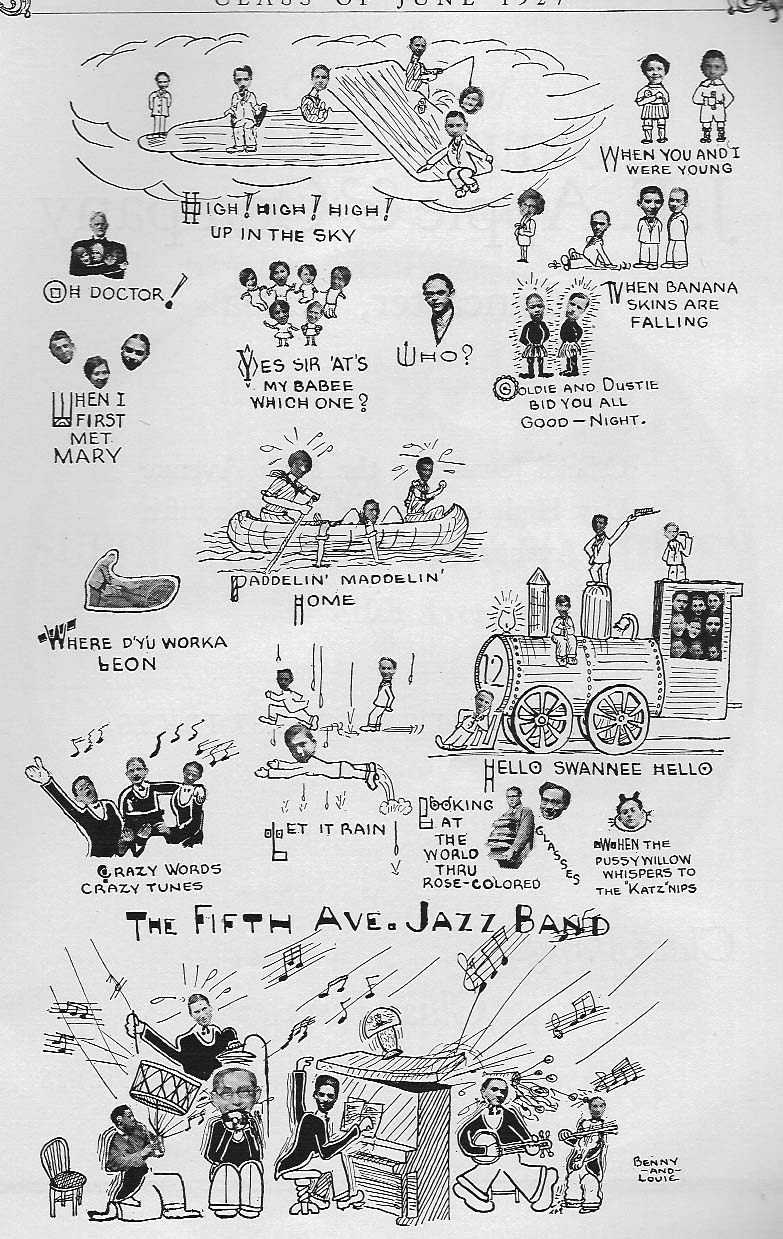 CLASS OF JUNE 1927
HIGH! HIGH! HIGH!
UP IN THE SKY
WHEN YOU AND I
WERE YOUNG
OH DOCTOR!
YES SIR 'AT'S
MY BABEE
WHICH ONE?
WHO?
WHEN BANANA
SKINS ARE
FALLING
GOLDIE AND DUSTIE
BID YOU ALL
GOOD-NIGHT.
WHEN I
FIRST
MET
MARY
PADDELIN' MADDELIN'
HOME
WHERE D'YU WORKA
LEON
12
HELLO SWANNEE HELLO
CRAZY WORDS
CRAZY TUNES
LET IT RAIN
LOOKING
AT
THE
WORLD
THRU
ROSE-COLORED
GLASSES
WHEN THE
PUSSYWILLOW
WHISPERS TO
THE "KATZ"NIPS
THE FIFTH AVE. JAZZ BAND
BENNY
-AND-
LOUIE